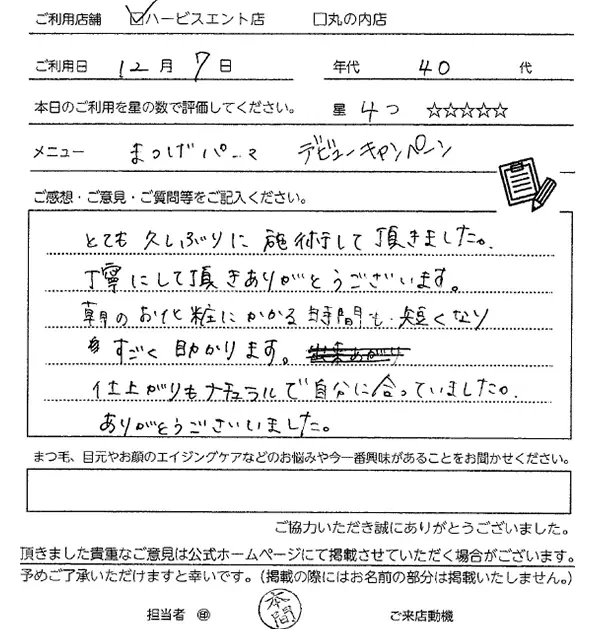 ご利用店舗 ☑ハービスエント店 □丸の内店
ご利用日 12月 7日 年代 40 代
本日のご利用を星の数で評価してください。 星 4つ ☆☆☆☆☆
メニュー まつげパーマ デビューキャンペーン
ご感想・ご意見・ご質問等をご記入ください。
とても久しぶりに施術して頂きました。
丁寧にして頂きありがとうございます。
朝のお化粧にかかる時間も短くなり
すごく助かります。
仕上がりもナチュラルで自分に合っていました。
ありがとうございいました。
まつ毛、目元やお顔のエイジングケアなどのお悩みや今一番興味があることをお聞かせください。
ご協力いただき誠にありがとうございました。
頂きました貴重なご意見は公式ホームページにて掲載させていただく場合がございます。
予めご了承いただけますと幸いです。(掲載の際にはお名前の部分は掲載いたしません。)
担当者 ㊞ 本間 ご来店動機